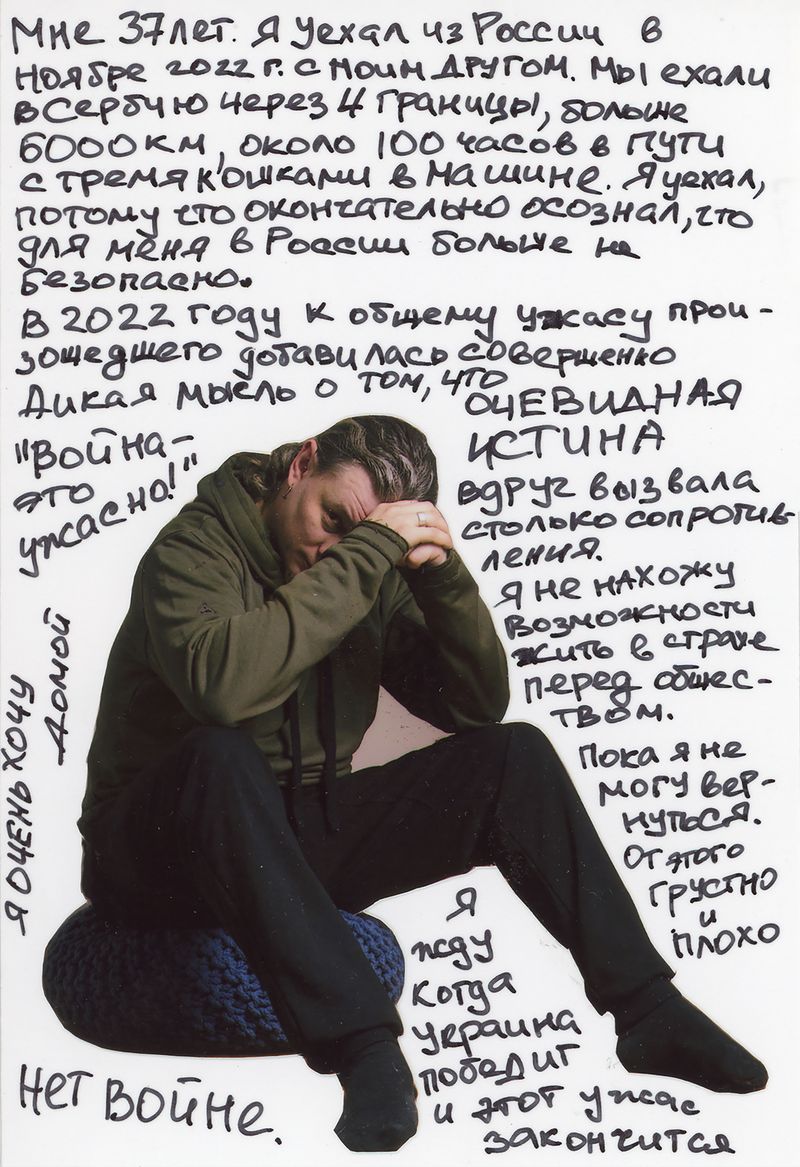 Мне 37 лет. Я уехал из России в
ноябре 2022 г. с моим другом. Мы ехали
в Сербию через 4 границы, больше
6000 км, около 100 часов в пути
с тремя кошками в машине. Я уехал,
потому что окончательно осознал, что
для меня в России больше не
безопасно.
В 2022 году к общему ужасу прои-
зошедшего добавилась совершенно
дикая мысль о том, что
ОЧЕВИДНАЯ
ИСТИНА
"ВОЙНА-
это
ужасно!"
вдруг вызвала
столько сопротив-
ления.
Я не нахожу
возможности
жить в страхе
перед общес-
твом.
Пока я не
могу вер-
нуться.
От этого
грустно
и
плохо
Я очень хочу
домой
Я
жду
когда
Украина
победит
и этот ужас
закончится
Нет войне.